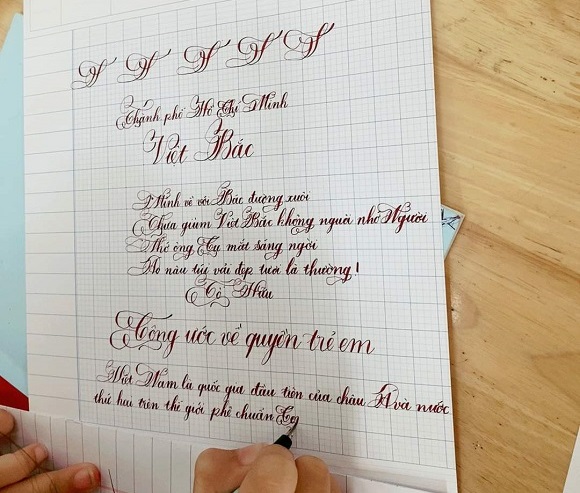 Thành phố Hồ Chí Minh
Việt Bắc
Mình về với Bác đường xuôi
Thưa giùm Việt Bắc không nguôi nhớ Người
Nhớ ông Cụ mắt sáng ngời
Áo nâu túi vải đẹp tươi lạ thường!
Tố Hữu
Công ước về quyền trẻ em
Việt Nam là quốc gia đầu tiên của châu Á và nước
thứ hai trên thế giới phê chuẩn Cô